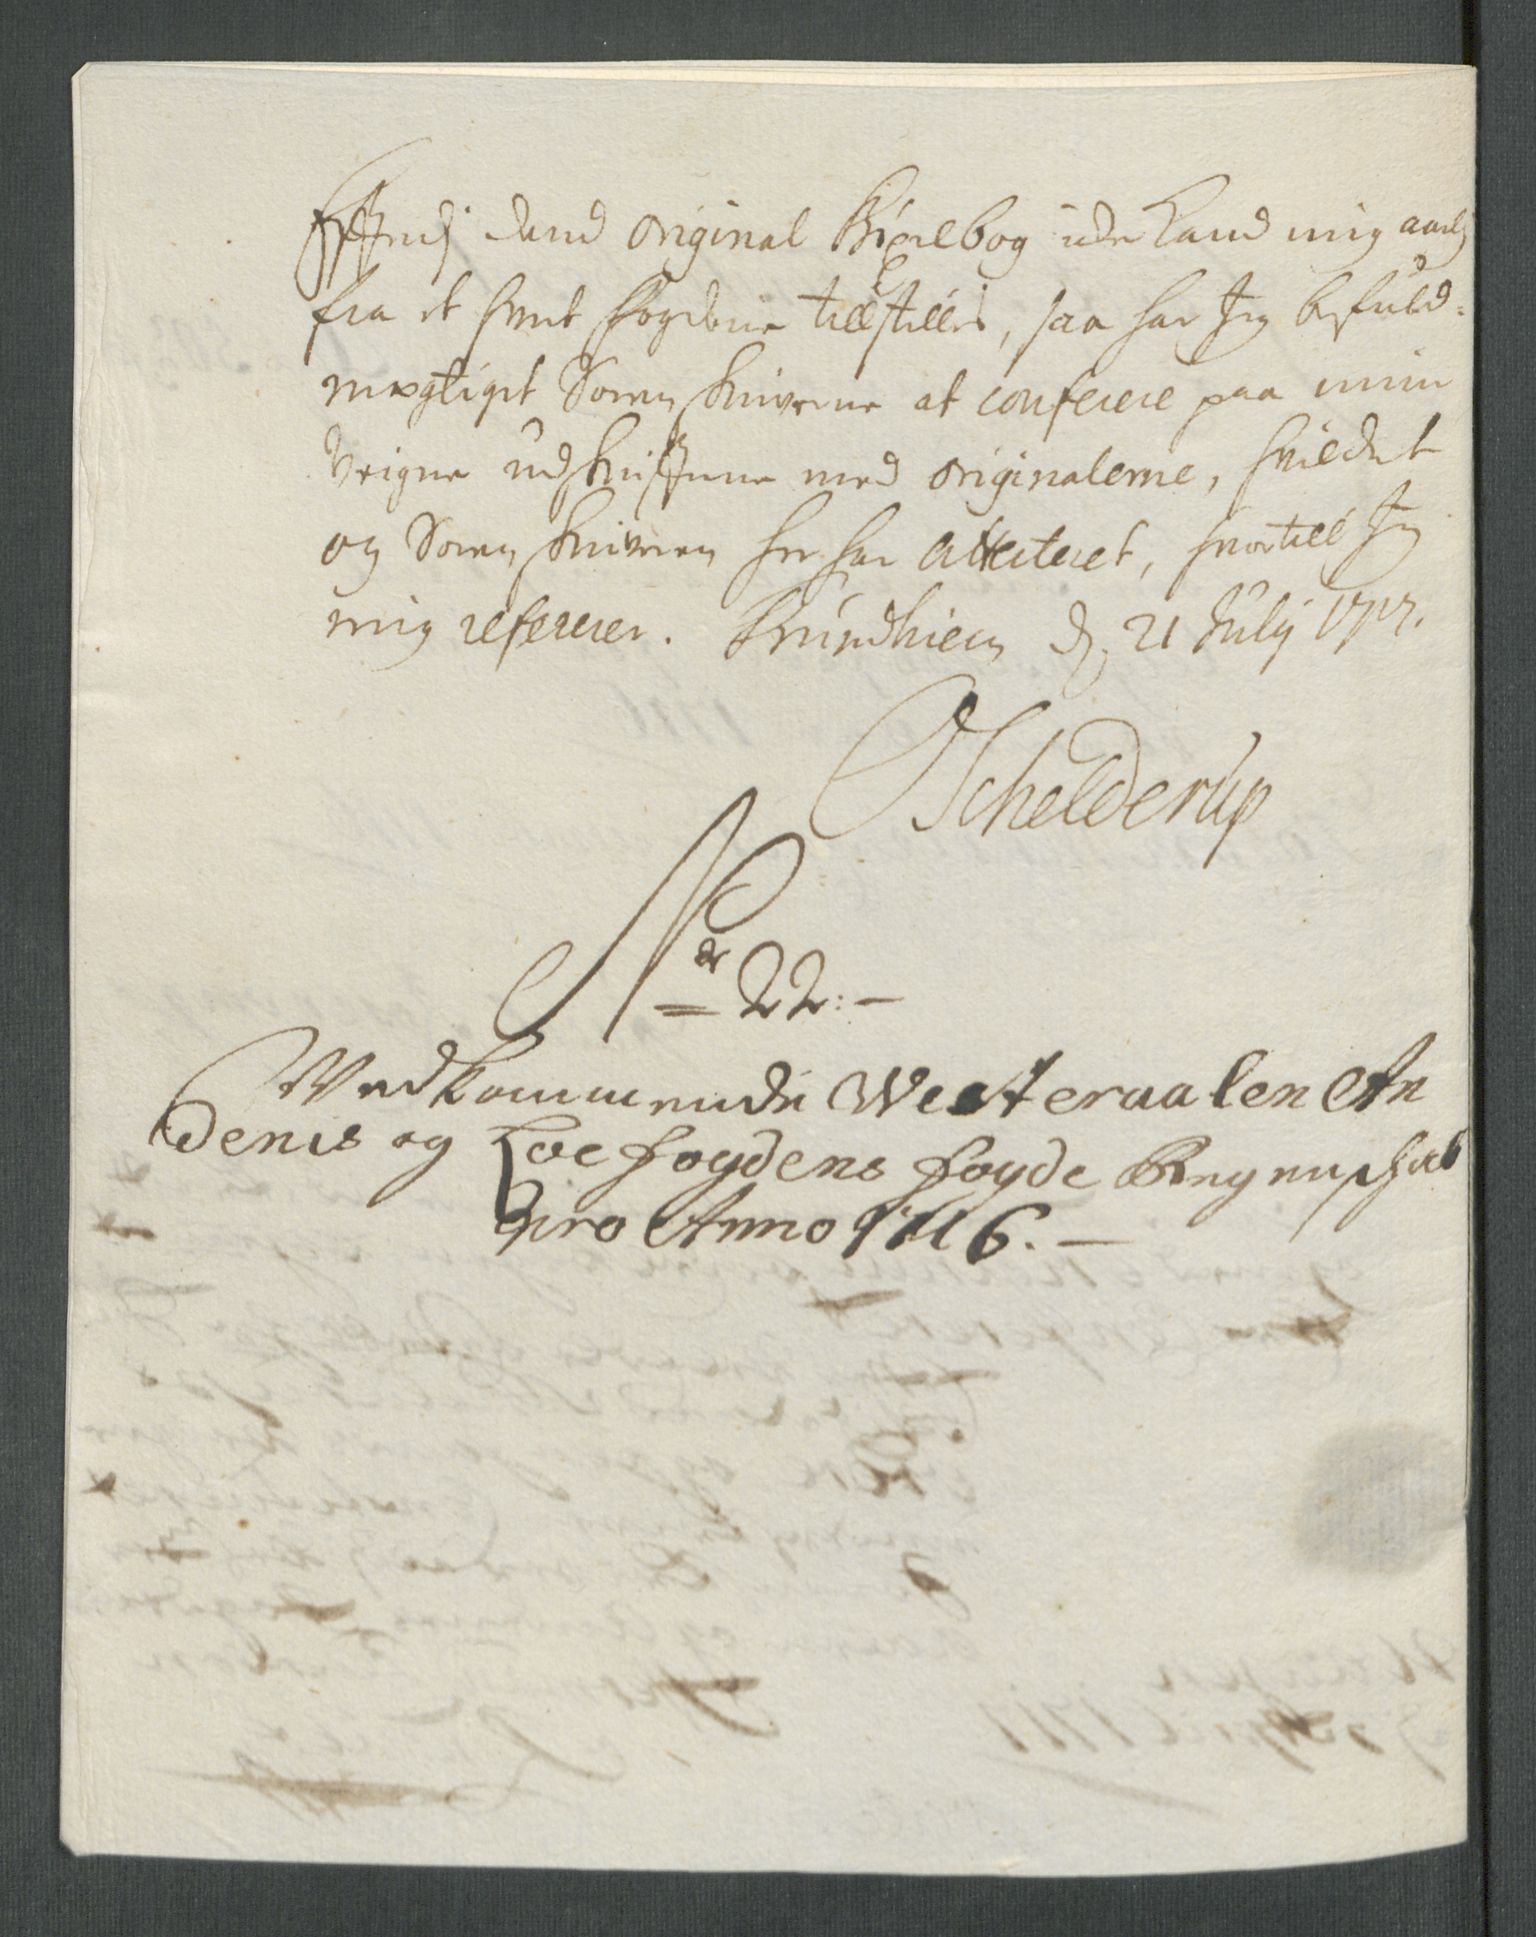 Efftersom dend original Böxelbog icke kand mig aarl:
fra et hvert fogderie tillstilles, saa har Jeg befuld-
mægtiget Soren skriverne at conferere paa mine
Veigne udskrifftene med originalerne, hvilchet
og Soren skriveren her har atterteret, hvortill Jeg
mig referer. Trundhiem d. 21 Julij 1717.
OSchelderup
Nr 22:-
Vedkommende Westeraalen An
denis og Loefogdens fogde Regnschab
pro Anno 1716.-